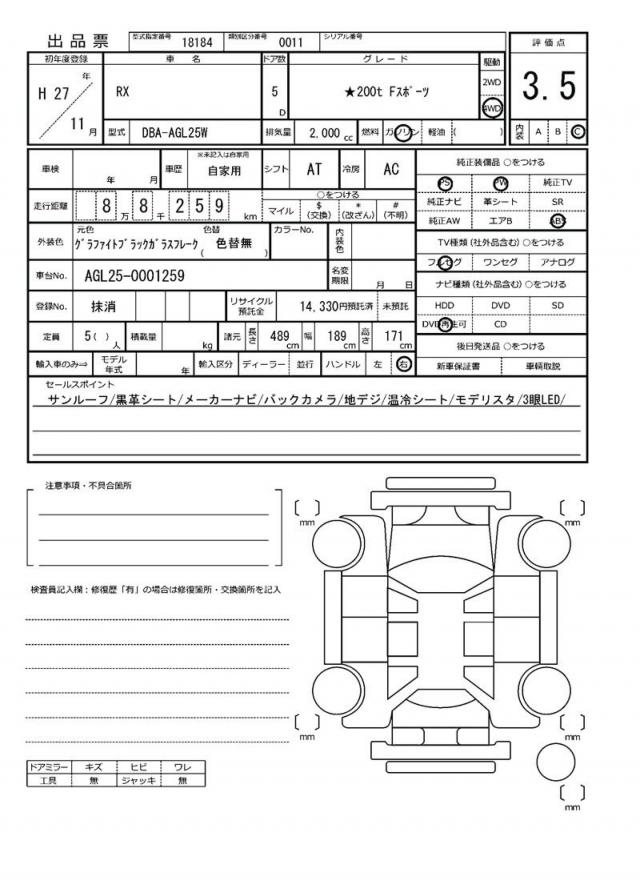 出品票 型式指定番号 18184 類別区分番号 0011 シリアル番号
評価点
3.5
内装 A B C
初年度登録 車名 ドア数 グレード 駆動
H 27 年 11 月 RX 5 D ★200t Fスポーツ 2WD 4WD
型式 DBA-AGL25W 排気量 2,000 cc 燃料 ガソリン 軽油 ( )
車検 年 月 車歴 ※未記入は自家用 自家用 シフト AT 冷房 AC
走行距離 8 万 8 千 2 5 9 km ○をつける マイル $ (交換) * (改ざん) # (不明)
外装色 元色 グラファイトブラックガラスフレーク 色替 ( 色替無 ) カラーNo. 内装色
車台No. AGL25-0001259 名変期限 月 日
登録No. 抹消 リサイクル預託金 14,330円預託済 未預託
定員 5( ) 人 積載量 kg 諸元 長さ 489 cm 幅 189 cm 高さ 171 cm
輸入車のみ⇒ モデル年式 年 輸入区分 ディーラー 並行 ハンドル 左 右
純正装備品 ○をつける
PS PW 純正TV
純正ナビ 革シート SR
純正AW エアB ABS
TV種類 (社外品含む) ○をつける
フルセグ ワンセグ アナログ
ナビ種類 (社外品含む) ○をつける
HDD DVD SD
DVD再生可 CD
後日発送品 ○をつける
新車保証書 車輌取説
セールスポイント
サンルーフ/黒革シート/メーカーナビ/バックカメラ/地デジ/温冷シート/モデリスタ/3眼LED/
注意事項・不具合箇所
検査員記入欄：修復歴「有」の場合は修復箇所・交換箇所を記入
ドアミラー キズ ヒビ ワレ
工具 無 ジャッキ 無
[ ] mm
[ ] mm
[ ] mm
[ ] mm
[ ] mm